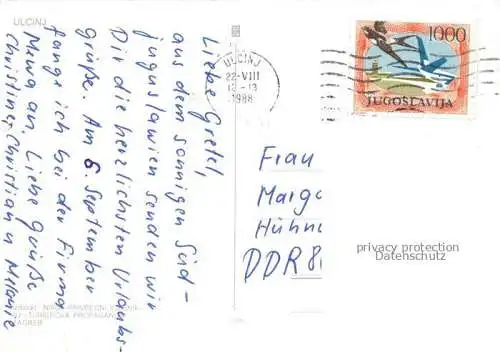 ULCINJ
Liebe Gretel,
aus dem sonnigen Süd-
jugoslawien senden wir
Dir die herzlichsten Urlaubs-
grüße. Am 6. September
fange ich bei der Firma
an. Liebe Grüße
Christine, Christian u Melanie
ULCINJ
22-VIII
12-13
1988
1000
JUGOSLAVIJA
Frau
Marga
Hühne
DDR 8
privacy protection
Datenschutz
TURISTIČKA PROPAGANDA
ZAGREB